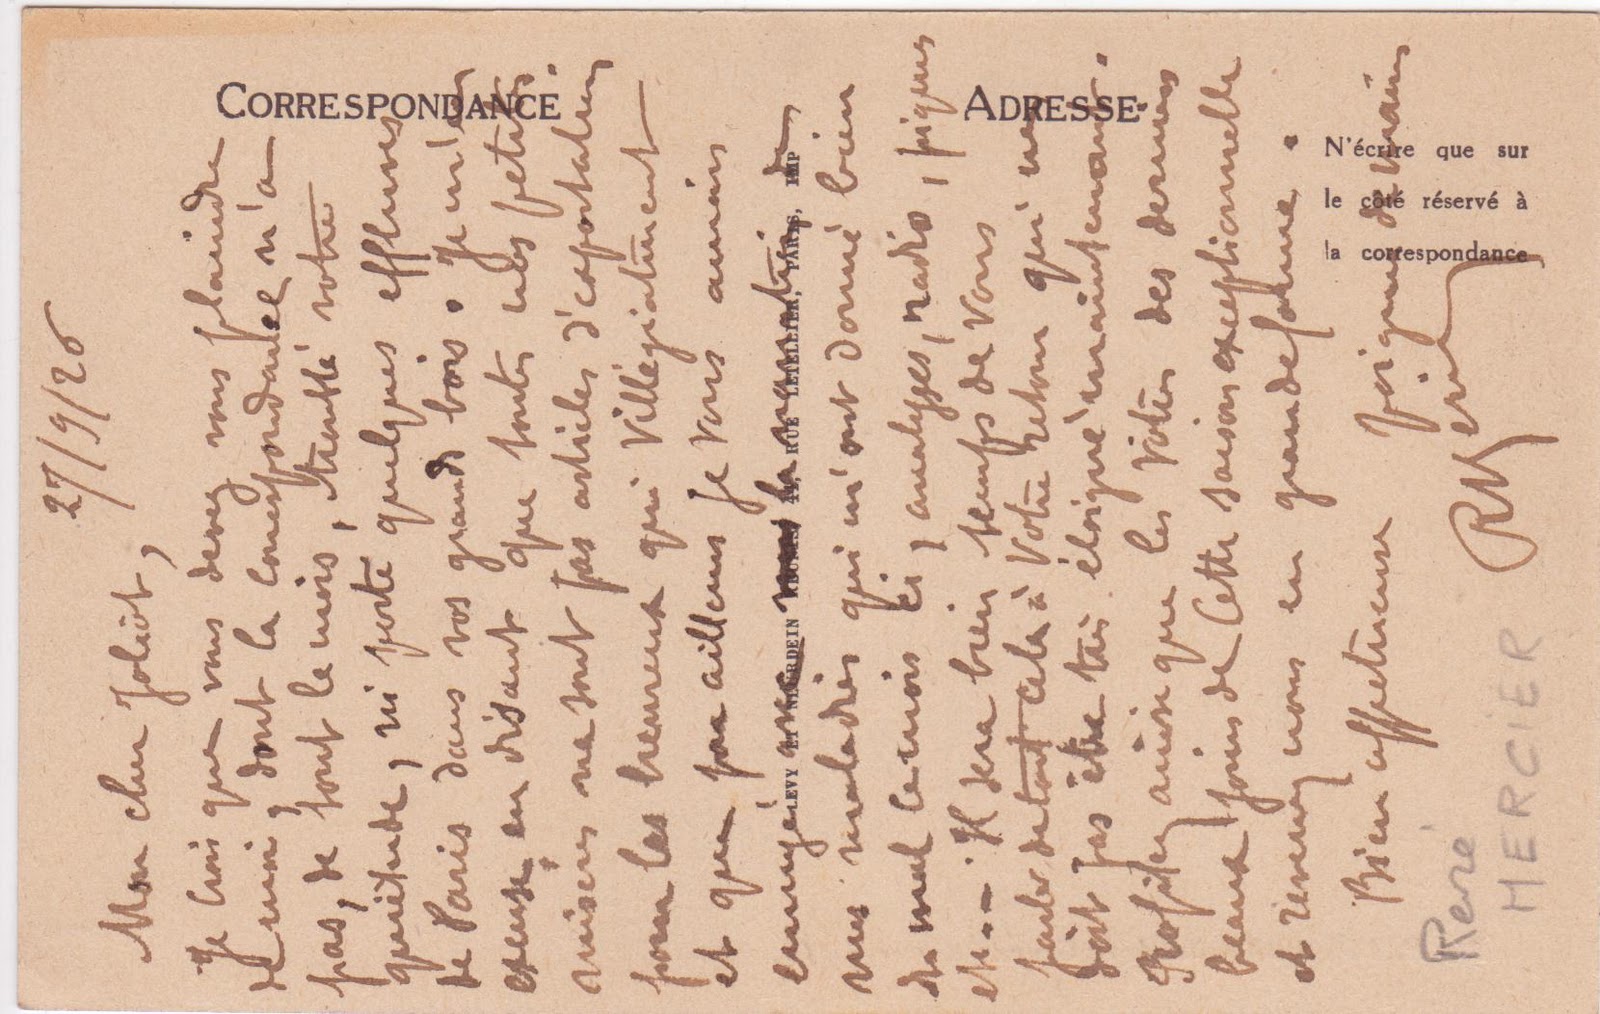 CORRESPONDANCE
ADRESSE
N'écrire que sur
le côté réservé à
la correspondance
LEVY ET NEURDEIN RÉUNIS, 44, RUE LETELLIER, PARIS, IMP
27/9/26
Mon cher Joliot,
Je crois que vous devez vous plaindre
de moi, dont la correspondance n'a
pas, de tout le mois, troublé votre
quiétude, ni porté quelques effluves
de Paris dans vos grands bois. Je m'en
excuse en disant que toutes nos petites
misères ne sont pas articles d'exportation
pour les heureux qui villégiaturent
et que par ailleurs je vous aurais
ennuyé avec la numération de
mes maladies qui m'ont donné bien
du mal ce mois ci, analyses, radio, piqûres
etc... Il sera bien temps de vous
parler de tout cela à votre retour qui ne
doit pas être très éloigné maintenant.
Profitez ainsi que les vôtres des derniers
beaux jours de cette saison exceptionnelle
et revenez nous en grande forme.
Bien affectueuse poignée de mains
RMercier
René
MERCIER